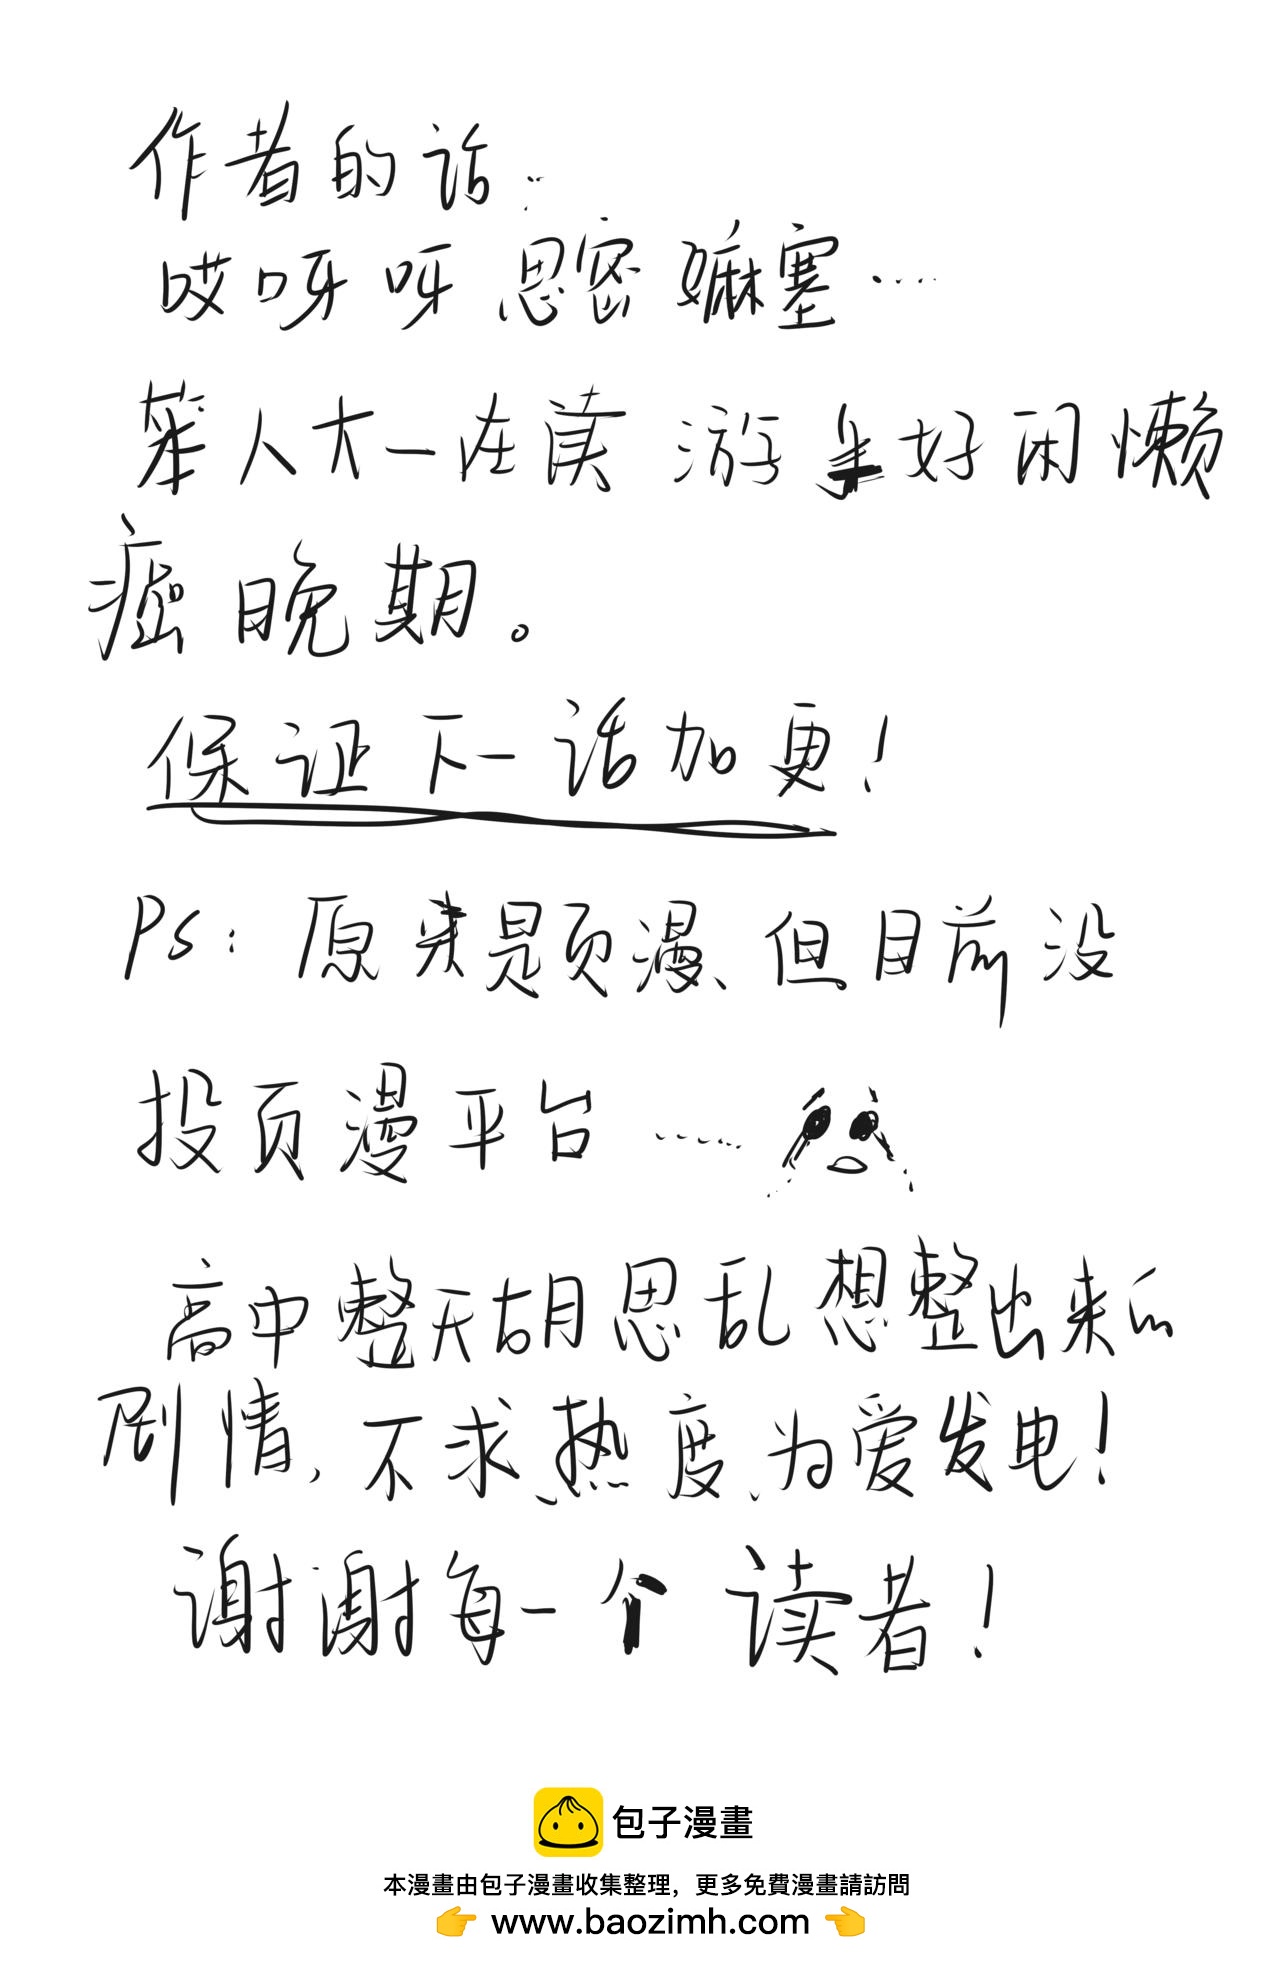 作者的话:
哎呀呀 思密嘛塞……
笨人大一在读 游手好闲懒
癌晚期。
保证下一话加更！
Ps：原来是页漫、但目前没
投页漫平台……
高中整天胡思乱想整出来的
剧情，不求热度、为爱发电！
谢谢每一个读者！
包子漫畫
本漫畫由包子漫畫收集整理，更多免費漫畫請訪問
👉 www.baozimh.com 👈